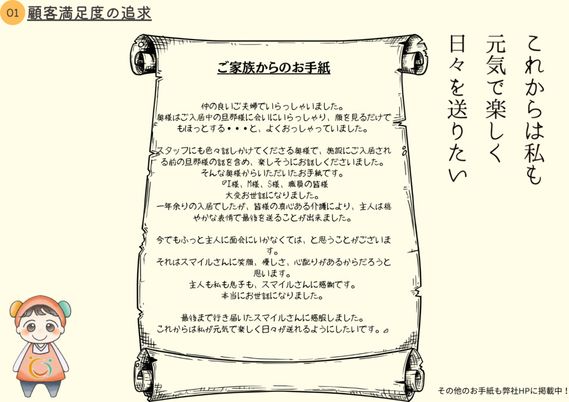 01 顧客満足度の追求
ご家族からのお手紙
仲の良いご夫婦でいらっしゃいました。
奥様はご入居中の旦那様に会いにいらっしゃり、顔を見るだけで
もほっとする・・・と、よくおっしゃっていました。
スタッフにも色々話しかけてくださる奥様で、施設にご入居され
る前の旦那様の話を含め、楽しそうにお話しくださいました。
そんな奥様からいただいたお手紙です。
『I様、M様、S様、職員の皆様
大変お世話になりました。
一年余りの入居でしたが、皆様の真心ある介護により、主人は穏
やかな表情で最後を送ることが出来ました。
今でもふっと主人に面会にいかなくては、と思うことがございま
す。
それはスマイルさんに笑顔、優しさ、心配りがあるからだろうと
思います。
主人も私も息子も、スマイルさんに感謝です。
本当にお世話になりました。
最後まで行き届いたスマイルさんに感服しました。
これからは私が元気で楽しく日々が送れるようにしたいです。』
これからは私も
元気で楽しく
日々を送りたい
その他のお手紙も弊社HPに掲載中！